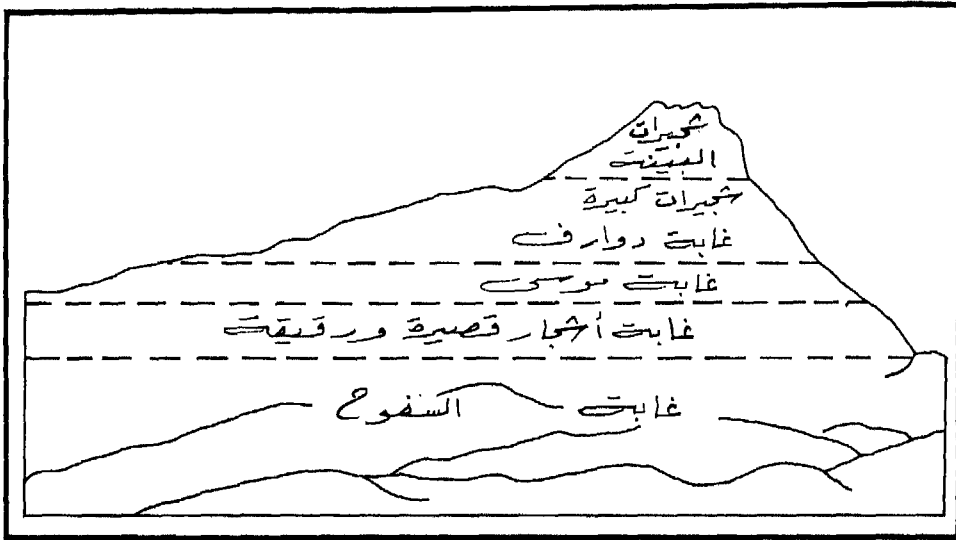 شجيرات
البينة
شجيرات كبيرة
غابة دوارف
غابة موسى
غابة أشجار قصيرة ورقيقة
غابة السفوح